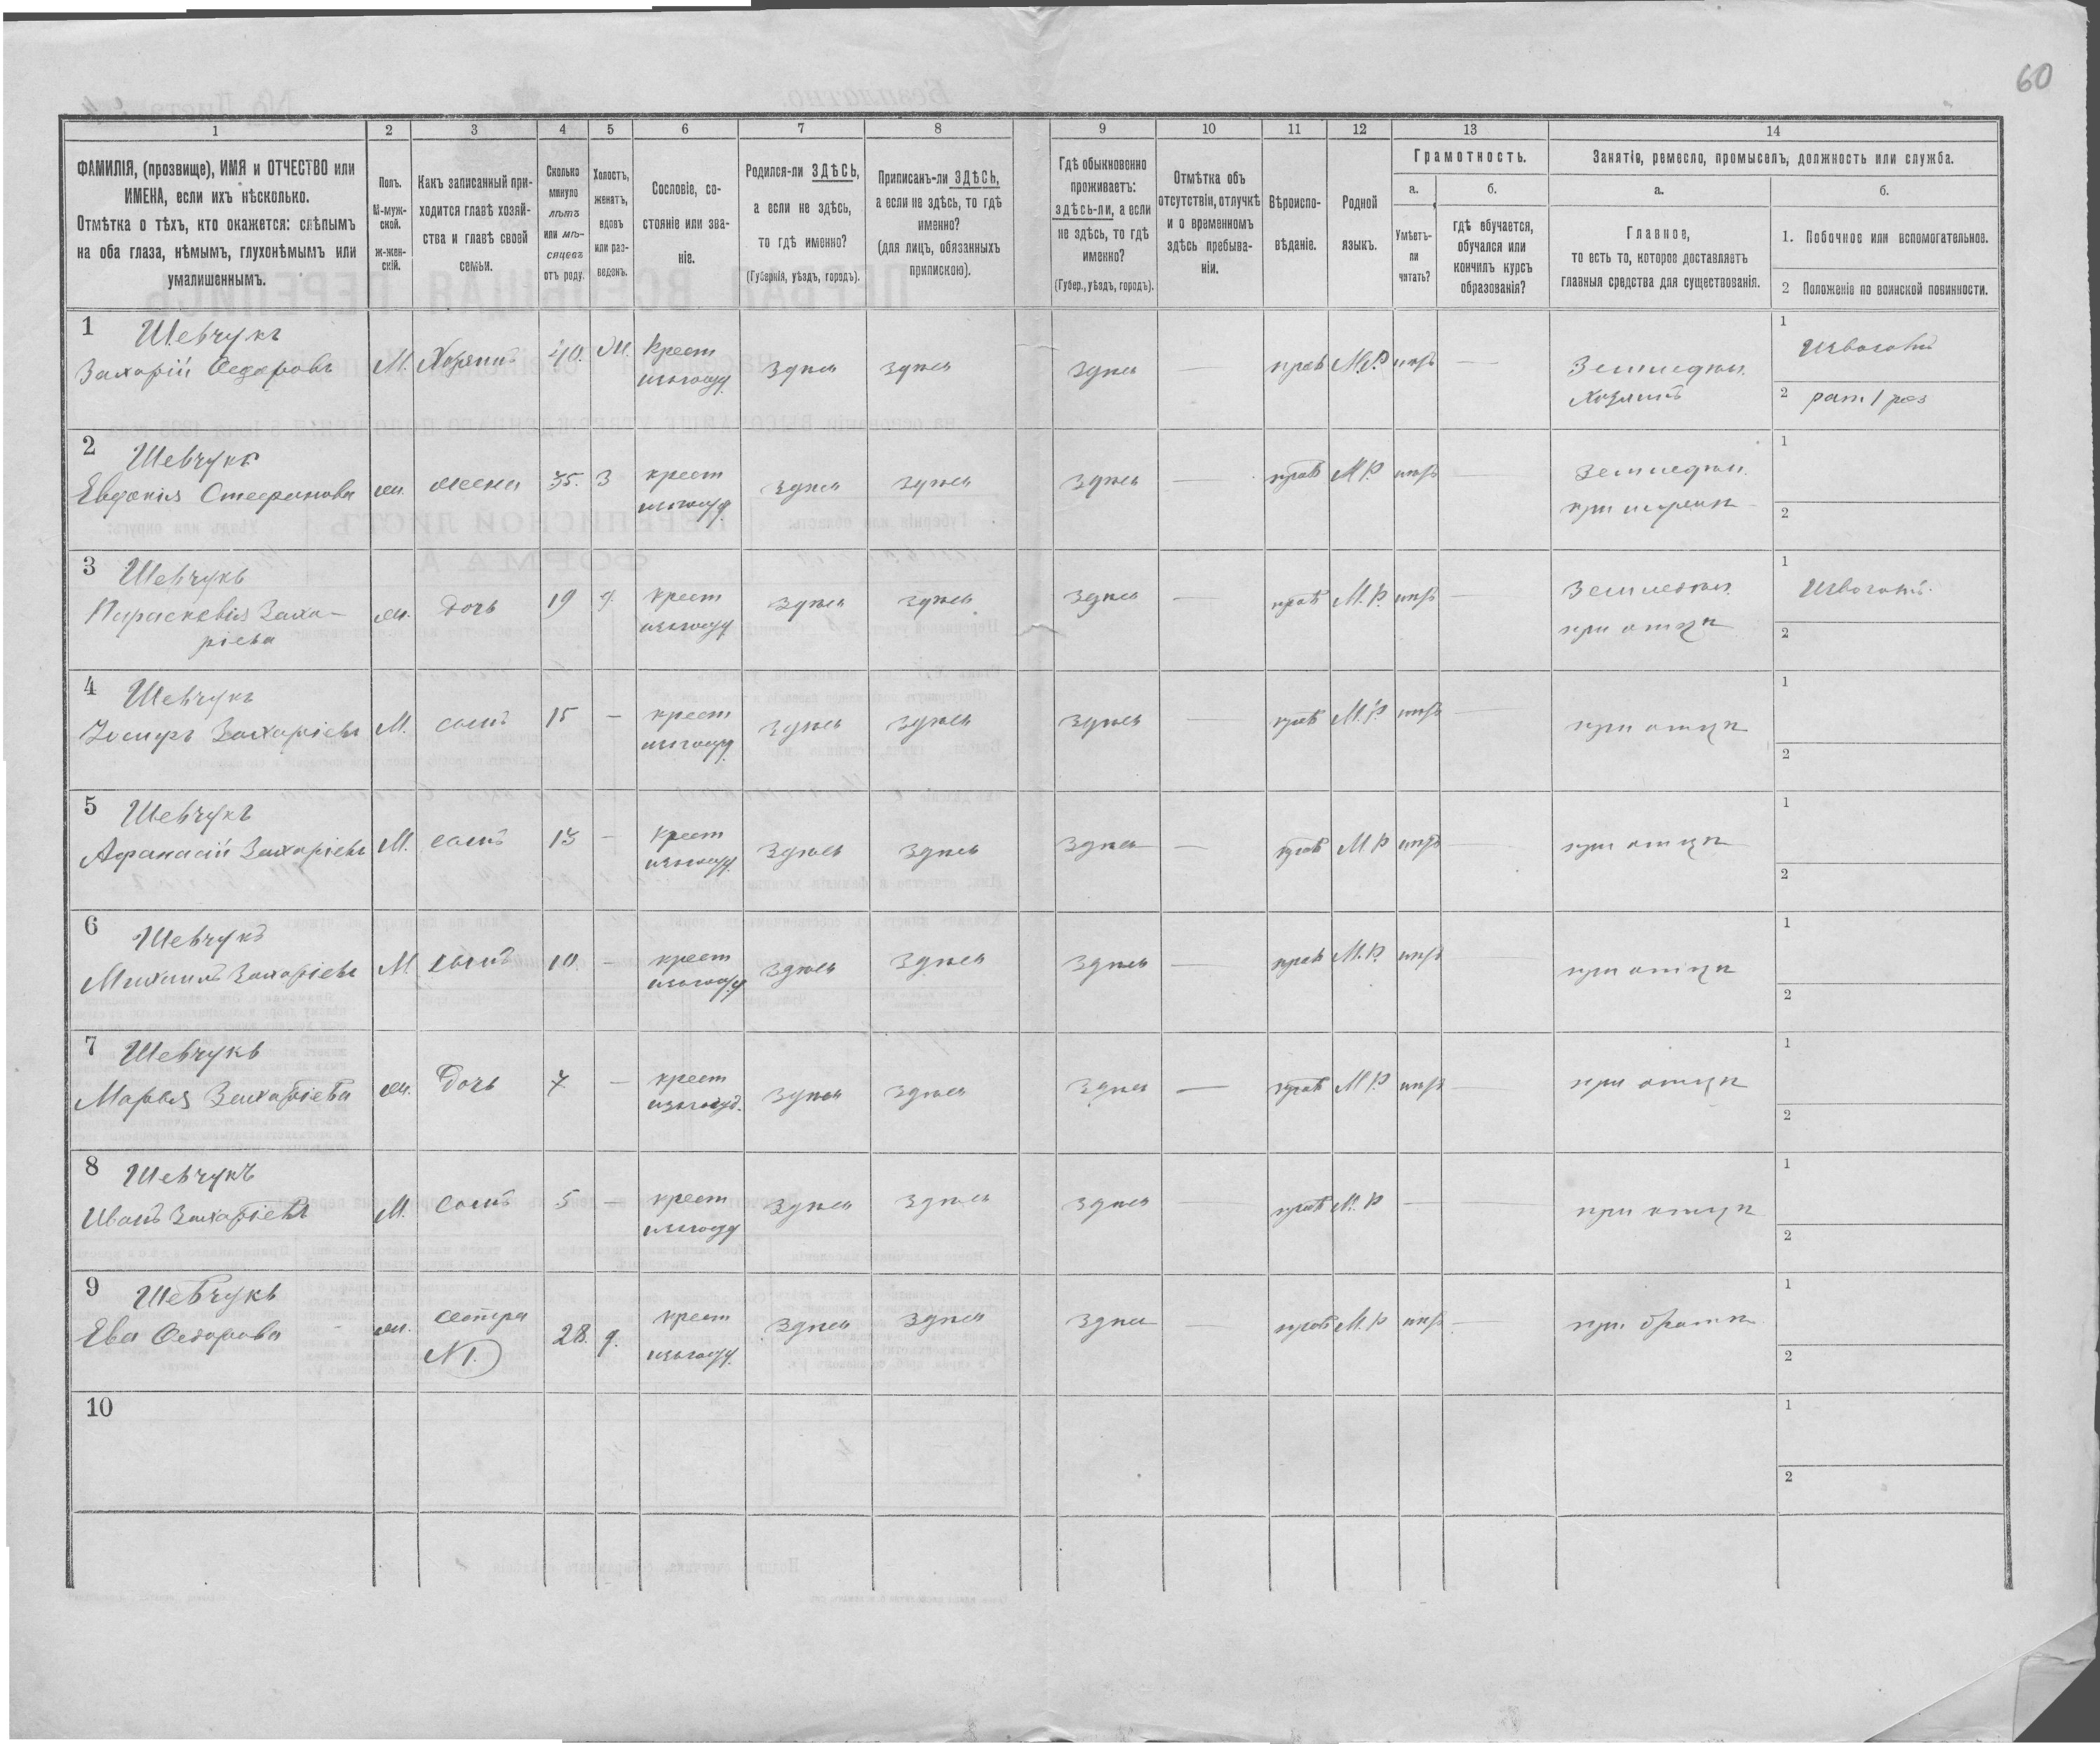 60
1 2 3 4 5 6 7 8 9 10 11 12 13 14
ФАМИЛІЯ, (прозвище), ИМЯ и ОТЧЕСТВО или
ИМЕНА, если ихъ нѣсколько.
Отмѣтка о тѣхъ, кто окажется: слѣпымъ
на оба глаза, нѣмымъ, глухонѣмымъ или
умалишеннымъ.
Полъ.
М-муж-
ской.
ж-жен-
скій.
Какъ записанный при-
ходится главѣ хозяй-
ства и главѣ своей
семьи.
Сколько
минуло
лѣтъ
или мѣ-
сяцевъ
отъ роду.
Холостъ,
женатъ,
вдовъ
или раз-
веденъ.
Сословіе, со-
стояніе или зва-
ніе.
Родился-ли ЗДѢСЬ,
а если не здѣсь,
то гдѣ именно?
(Губернія, уѣздъ, городъ).
Приписанъ-ли ЗДѢСЬ,
а если не здѣсь, то гдѣ
именно?
(для лицъ, обязанныхъ
припискою).
Гдѣ обыкновенно
проживаетъ:
здѣсь-ли, а если
не здѣсь, то гдѣ
именно?
(Губер., уѣздъ, городъ).
Отмѣтка объ
отсутствіи, отлучкѣ
и о временномъ
здѣсь пребыва-
ніи.
Вѣроиспо-
вѣданіе.
Родной
языкъ.
Грамотность.
а.
Умѣетъ-
ли
читать?
б.
гдѣ обучается,
обучался или
кончилъ курсъ
образованія?
Занятіе, ремесло, промыселъ, должность или служба.
а.
Главное,
то есть то, которое доставляетъ
главныя средства для существованія.
б.
1. Побочное или вспомогательное.
2 Положеніе по воинской повинности.
1 Шевчукъ
Захарій Федоровъ М. Хозяинъ 40. М. крест здѣсь здѣсь здѣсь — прав М.Р. —
Хозяинъ
1
2 рат 1 раз
2 Шевчукъ
Евдокія Стефанова жена 35. З крест здѣсь здѣсь здѣсь — прав М.Р. —
1
2
3 Шевчукъ
Параскевія Заха-
ріева дочь 19 крест здѣсь здѣсь здѣсь — прав М.Р. —
при отцѣ
1
2
4 Шевчукъ
Іосифъ Захаріевъ М. сынъ 15 — крест здѣсь здѣсь здѣсь — прав М.Р. — при отцѣ
1
2
5 Шевчукъ
Афанасій Захаріевъ М. сынъ 13 — крест здѣсь здѣсь здѣсь — прав М.Р. при отцѣ
1
2
6 Шевчукъ
Михаилъ Захаріевъ М. сынъ 10. — крест здѣсь здѣсь здѣсь — прав М.Р. при отцѣ
1
2
7 Шевчукъ
Марья Захаріева дочь 7 — крест здѣсь здѣсь здѣсь — прав М.Р. — при отцѣ
1
2
8 Шевчукъ
Иванъ Захаріевъ М. сынъ 5 — крест здѣсь здѣсь здѣсь — прав М.Р. — — при отцѣ
1
2
9 Шевчукъ
Ева Федорова сестра 28. крест здѣсь здѣсь здѣсь — прав М.Р. — при братѣ
№1.
1
2
10
1
2